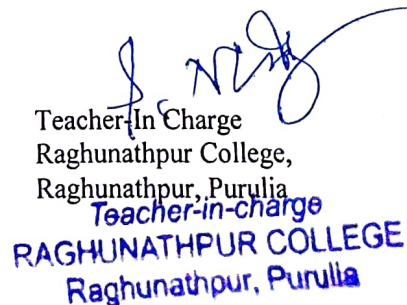 Teacher-In Charge
Raghunathpur College,
Raghunathpur, Purulia
Teacher-in-charge
RAGHUNATHPUR COLLEGE
Raghunathpur, Purulia